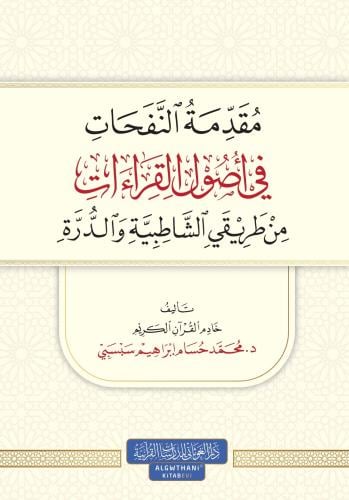 مُقَدِّمَةُ ٱلنَّفَحَاتِ
فِي أُصُولِ ٱلْقِرَاءَاتِ
مِنْ طَرِيقَيِ ٱلشَّاطِبِيَّةِ وَٱلدُّرَّةِ
تأليف
خادم القرآن الكريم
د. محمّد حسام إبراهيم سبسبي
دار الغوثاني للدراسات القرآنية
ALGWTHANI
KITABEVI